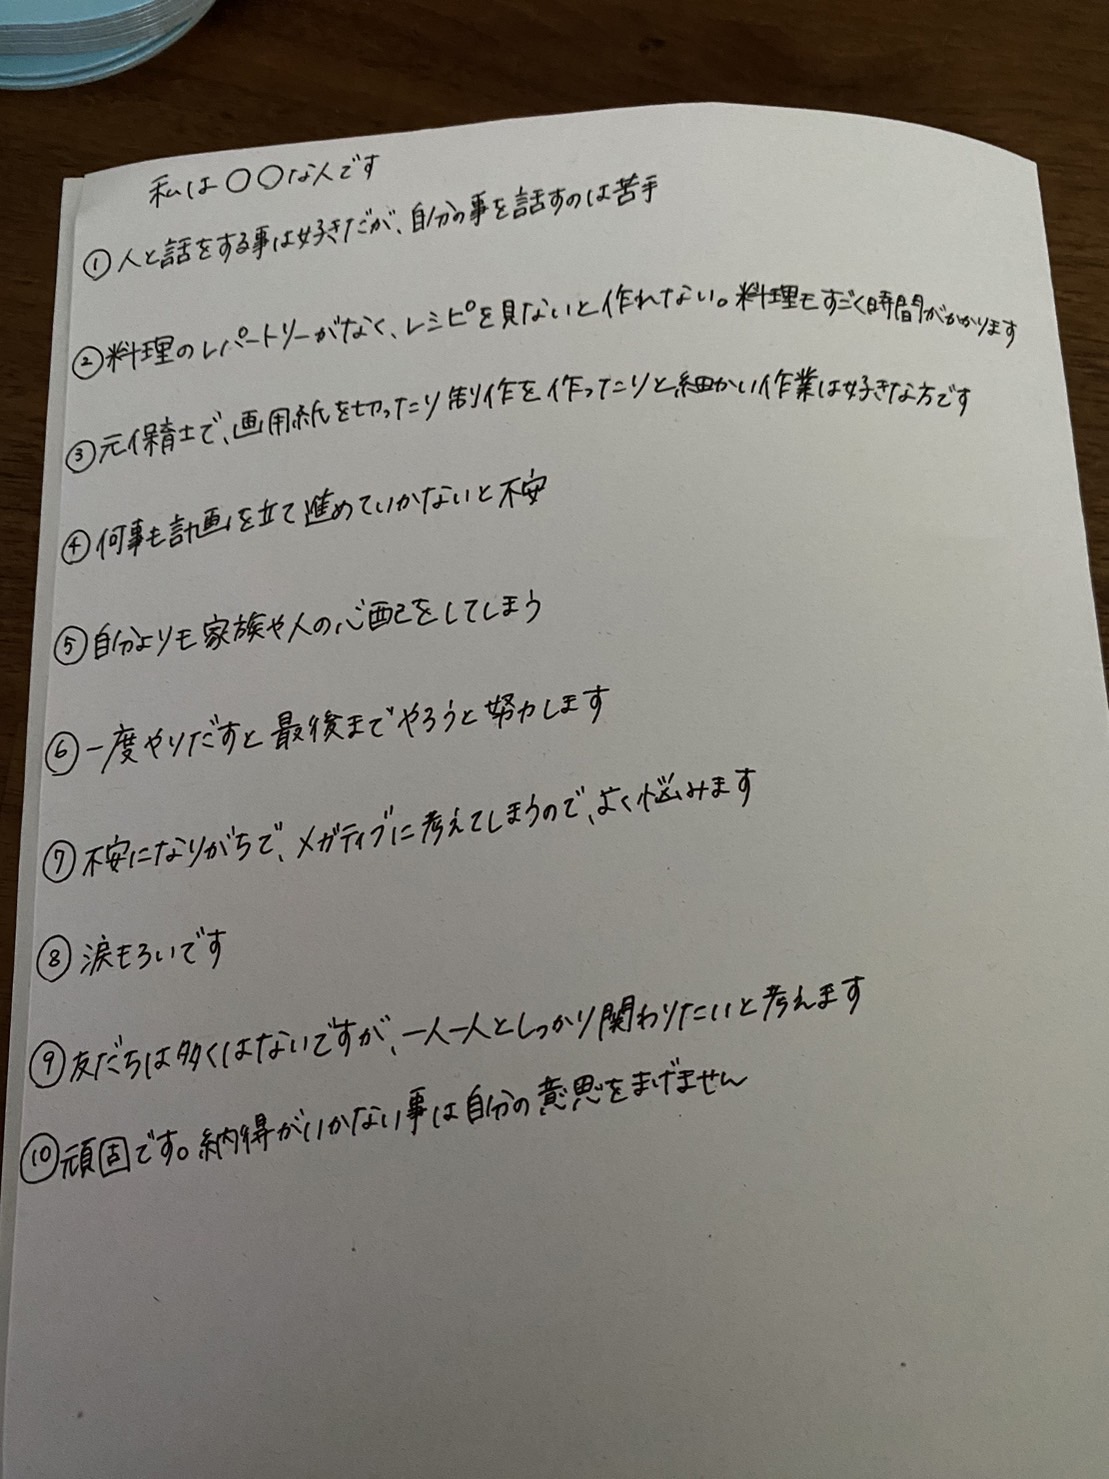 私は〇〇な人です
①人と話をする事は好きだが、自分の事を話すのは苦手
②料理のレパートリーがなく、レシピを見ないと作れない。料理もすごく時間がかかります
③元保育士で、画用紙を切ったり制作を作ったりと細かい作業は好きな方です
④何事も計画を立て進めていかないと不安
⑤自分よりも家族や人の心配をしてしまう
⑥一度やりだすと最後までやろうと努力します
⑦不安になりがちで、メガティブに考えてしまうので、よく悩みます
⑧涙もろいです
⑨友だちは多くはないですが、一人一人としっかり関わりたいと考えます
⑩頑固です。納得がいかない事は自分の意思をまげません